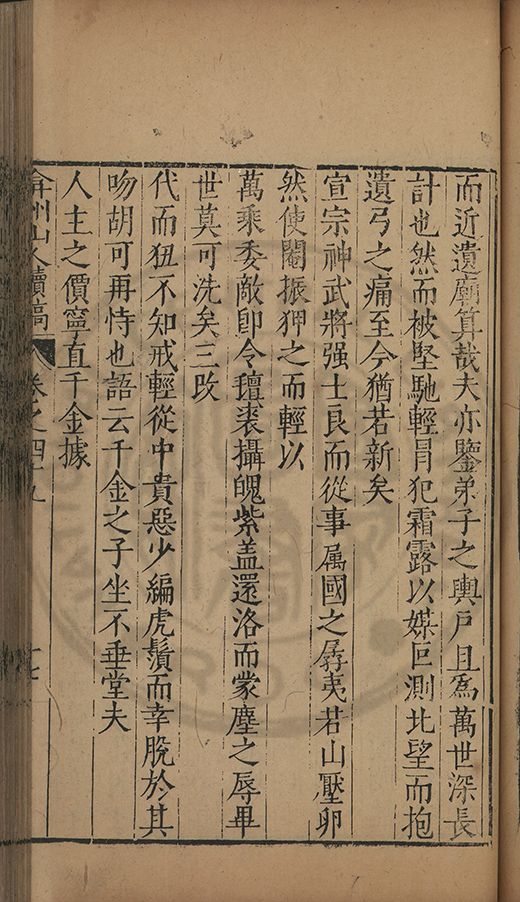 而近遺廟算哉夫亦鑒弟子之輿尸且爲萬世深長
計也然而被堅馳輕冐犯霜露以媒叵測北望而抱
遺弓之痛至今猶若新矣
宣宗神武將强士良而從事属國之孱夷若山壓卵
然使閹振狎之而輕以
萬乘委敵卽令氊裘攝魄紫盖還洛而蒙塵之辱畢
世莫可洗矣三改
代而狃不知戒輕從中貴惡少編虎鬚而幸脫於其
吻胡可再恃也語云千金之子坐不垂堂夫
人主之價寧直千金據
弇州山人續稿 卷之四十九 十七